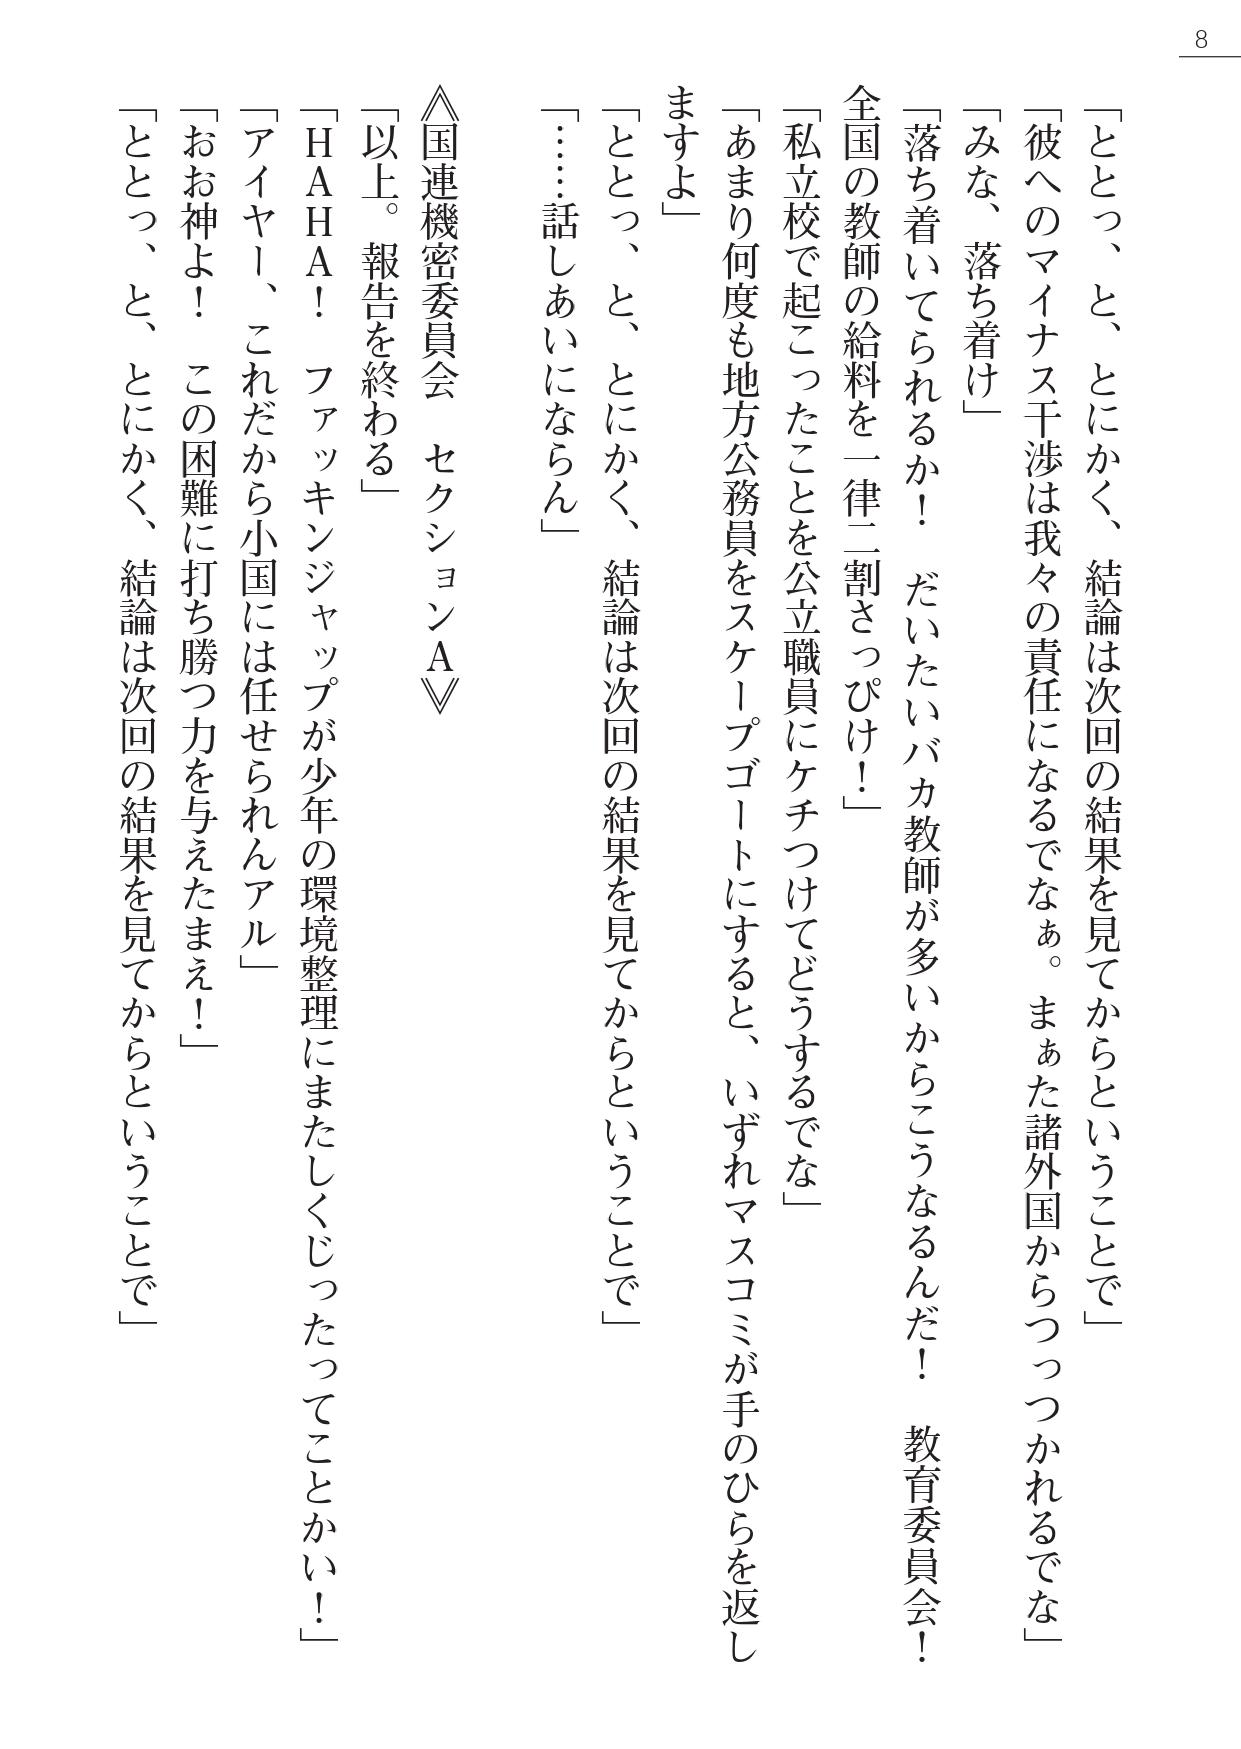 8
「ととっ、と、とにかく、結論は次回の結果を見てからということで」
「彼へのマイナス干渉は我々の責任になるでなぁ。まぁた諸外国からつっつかれるでな」
「みな、落ち着け」
「落ち着いてられるか！　だいたいバカ教師が多いからこうなるんだ！　教育委員会！
全国の教師の給料を一律二割さっぴけ！」
「私立校で起こったことを公立職員にケチつけてどうするでな」
「あまり何度も地方公務員をスケープゴートにすると、いずれマスコミが手のひらを返し
ますよ」
「ととっ、と、とにかく、結論は次回の結果を見てからということで」
「……話しあいにならん」
《国連機密委員会　セクションＡ》
「以上。報告を終わる」
「ＨＡＨＡ！　ファッキンジャップが少年の環境整理にまたしくじったってことかい！」
「アイヤー、これだから小国には任せられんアル」
「おお神よ！　この困難に打ち勝つ力を与えたまえ！」
「ととっ、と、とにかく、結論は次回の結果を見てからということで」